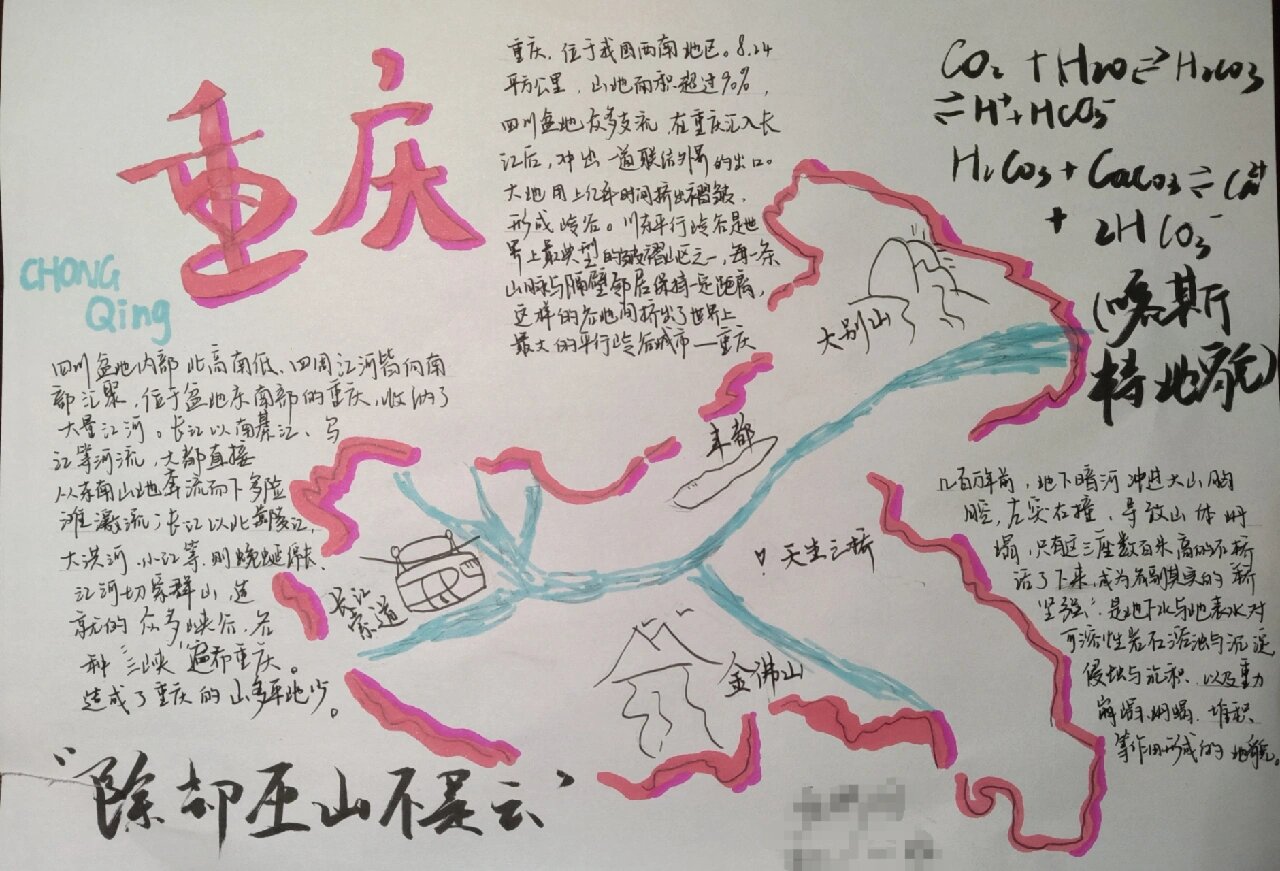 重庆
CHONG
Qing
重庆，位于我国西南地区。8.24
平方公里，山地面积超过90%，
四川盆地众多支流，在重庆汇入长
江后，冲出一道联结外界的出口。
大地用上亿年时间挤出褶皱，
形成峡谷。川东平行岭谷是世
界上最典型的褶皱山区之一，每一条
山脉与隔壁邻居保持一定距离，
这样的谷地间挤出了世界上
最大的平行岭谷城市—重庆
CO2 + H2O ⇌ H2CO3
⇌ H⁺ + HCO3⁻
H2CO3 + CaCO3 ⇌ Ca²⁺
+ 2HCO3⁻
(喀斯
特地貌)
四川盆地内部北高南低、四周江河皆向南
部汇聚，位于盆地东南部的重庆，收纳了
大量江河。长江以南綦江、乌
江等河流，大都直接
从东南山地奔流而下多险
滩激流；长江以北嘉陵江，
大洪河、小江等，则蜿蜒绵长、
江河切穿群山，造
就的众多峡谷，各
种“三峡”遍布重庆。
造成了重庆的山多平地少。
大别山
丰都
天生三桥
长江
索道
金佛山
几百万年前，地下暗河冲进大山胸
腔，左突右撞，导致山体坍
塌，只有这三座数百米高的石桥
活了下来，成为名副其实的“桥
坚强”，是地下水与地表水对
可溶性岩石溶蚀与沉淀
侵蚀与沉积，以及重力
崩塌、坍塌、堆积
等作用形成的地貌。
“除却巫山不是云”